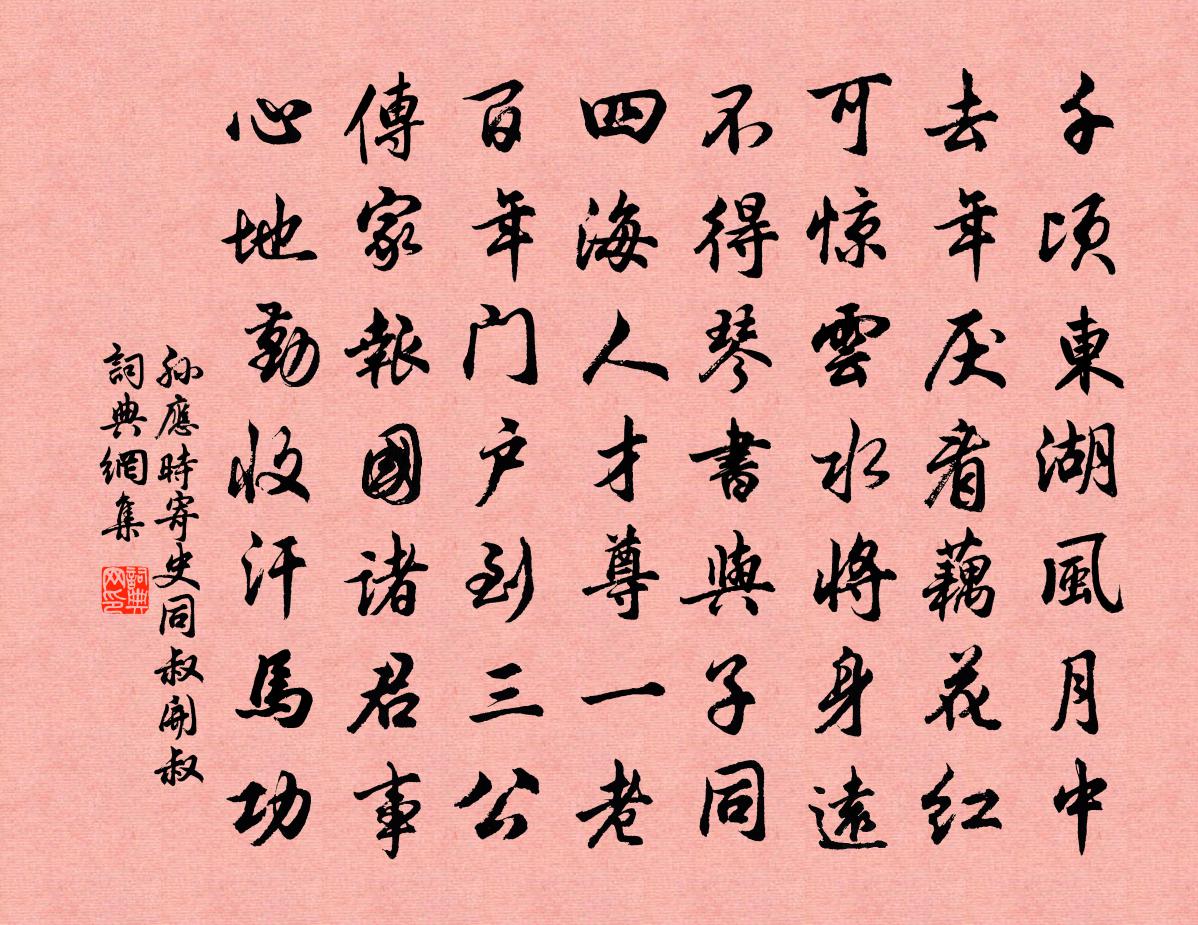 千頃東湖風月中
去年厌看藕花紅
可惊雲水將身遠
不得琴書與子同
四海人才尊一老
百年门户到三公
傳家報國諸君事
心地勤收汗馬功
孙應時寄史同叔開叔
詞典網集
詞典网印